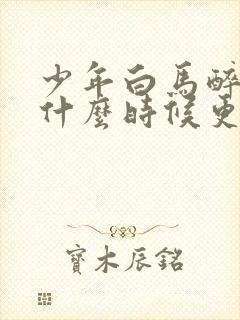 少年白馬醉
什麼時候更
寶木辰銘